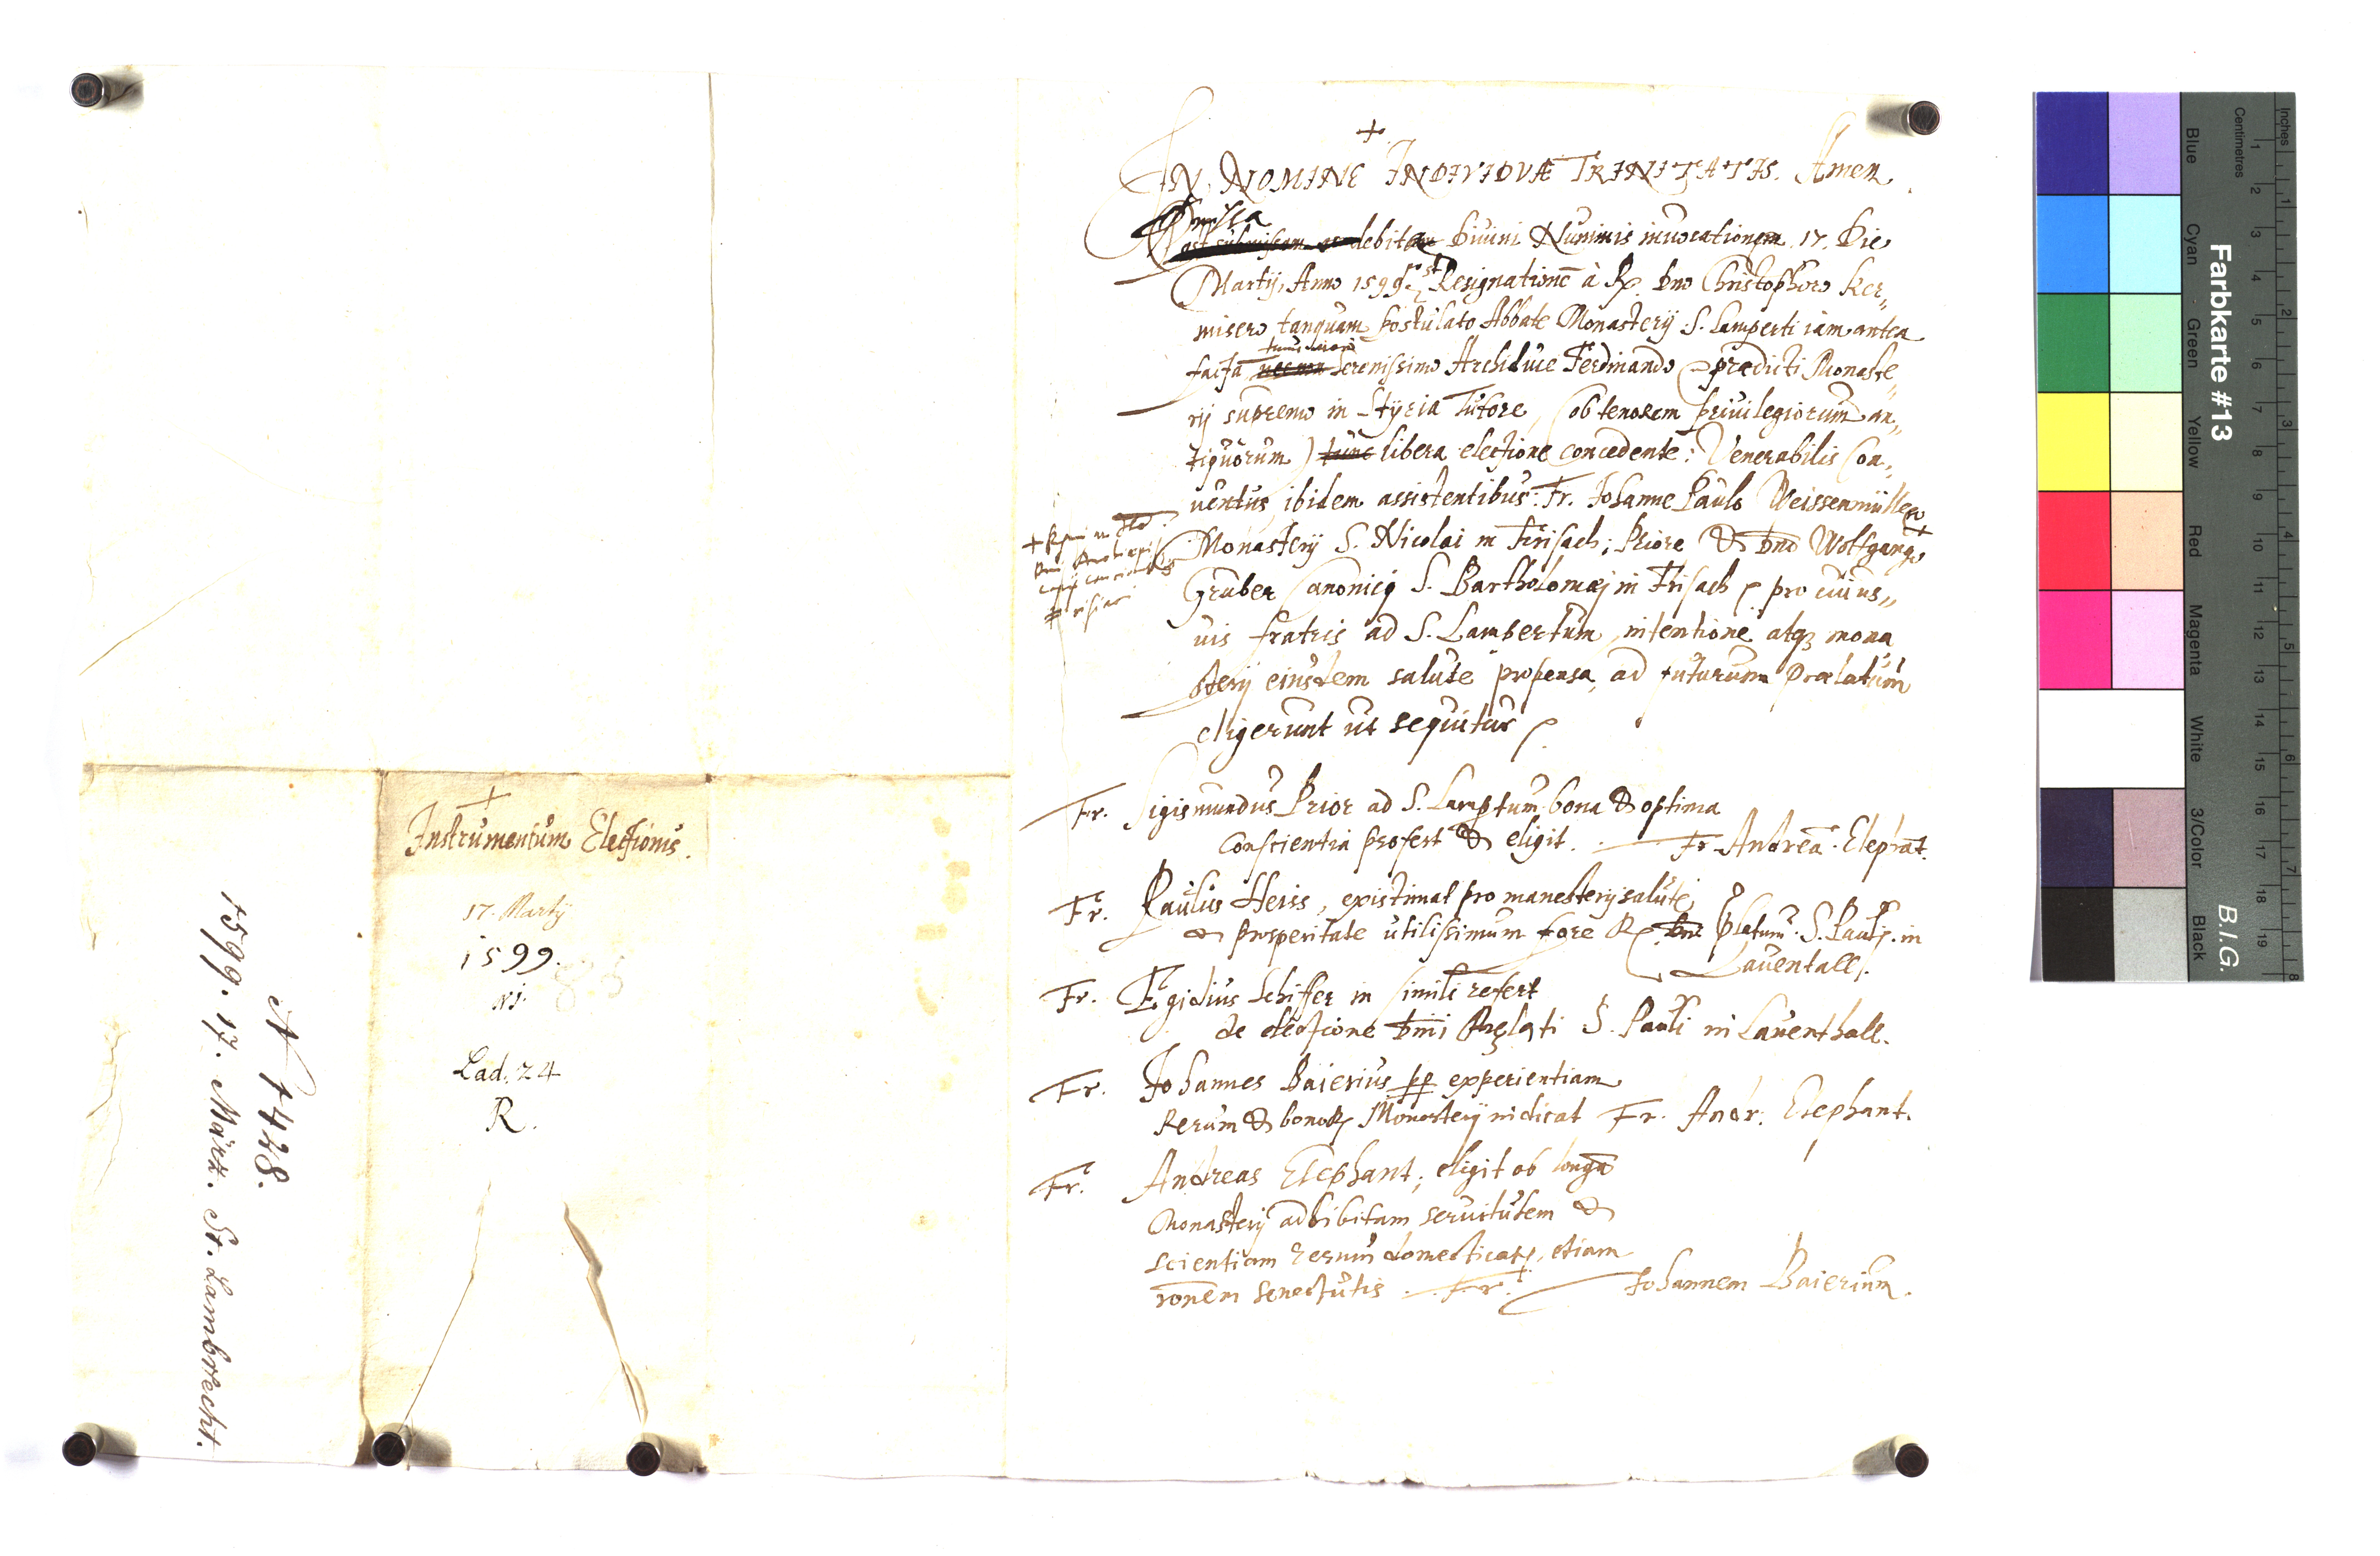 +
IN NOMINE INDIVIDVÆ TRINITATIS. Amen.
Praemissa
Post submissam ac debitam Diuini Numinis inuocationem. 17. Die
Martij, Anno 1599. post Resignationē à R. Dno Christophoro Ker„
misero tanquam postulato Abbate Monasterij S. Lamperti iam antea
facta
necnon Serenissimo Archiduce Ferdinando prædicti Monaste„
rij supremo in Styria Tutore, (ob tenorem priuilegiorum an„
tiquorum) tunc libera electione concedente: Venerabilis Con„
uentus ibidem assistentibus: Fr. Johanne Paulo Weissenmüller +
Monasterij S. Nicolai in Frisach; Priore & Dno Wolfgango
Gruber Canonico S. Bartholomæj in Frisach pro cuius„
uis fratris ad S. Lambertum, intentione atq; mona
sterij eiusdem salute propensa, ad futurum Prælatum
eligerunt ut sequitur
Fr. Sigismundus Prior ad S. Lamptum bona & optima
Conscientia profert & eligit. Fr. Andreā Elephāt.
Fr. Paulus Heiss, existimat pro manesterij salute,
& prosperitate utilissimum fore R. Dn. Platum S. Pauli in
Lauentall.
Fr. Egidius Schiffer in simili refert
de electione Dnii Prelati S. Pauli in Lauenthall.
Fr. Johannes Baierius pp experientiam
Rerum & bonor Monasterij indicat Fr. Andr: Elephant.
Fr. Andreas Elephant; eligit ob longā
Monasterij adhibitam seruitutem &
scientiam rerum domesticar, etiam
rōnem Senectutis Fr. Johannem Baierium.
+
Instrumentum Electionis.
17. Martij
1599.
N i.
Lad. 24
R.
N 1428.
1599. 17. März. St. Lambrecht.
Farbkarte #13
B.I.G.
Inches
Centimetres
1 2 3 4 5 6 7 8 9 10 11 12 13 14 15 16 17 18 19
1 2 3 4 5 6 7 8
Blue Cyan Green Yellow Red Magenta White 3/Color Black